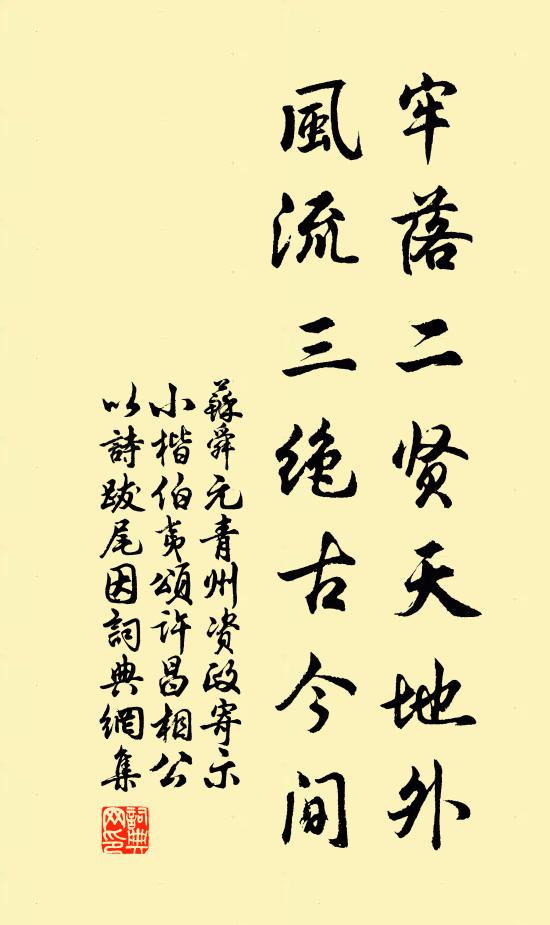 牢落二贤天地外
風流三绝古今间
蘇舜元青州资政寄示
小楷伯夷頌许昌相公
以詩跋尾因詞典網集
詞典網印